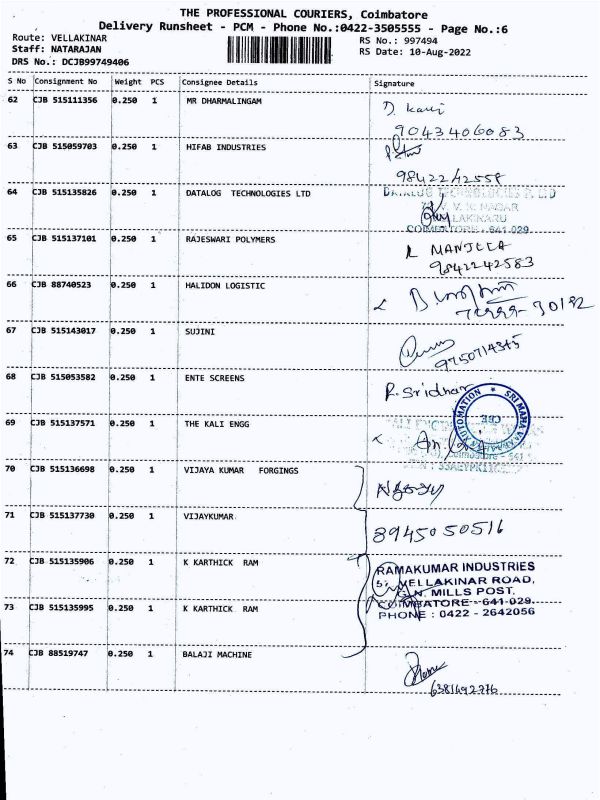 THE PROFESSIONAL COURIERS, Coimbatore
Delivery Runsheet - PCM - Phone No.:0422-3505555 - Page No.:6
Route: VELLAKINAR
RS No.: 997494
Staff: NATARAJAN
RS Date: 10-Aug-2022
DRS No.: DCJB99749406
S No Consignment No Weight PCS Consignee Details Signature
62 CJB 515111356 0.250 1 MR DHARMALINGAM D. kavi
9043406083
63 CJB 515059703 0.250 1 HIFAB INDUSTRIES
9842242558
64 CJB 515135826 0.250 1 DATALOG TECHNOLOGIES LTD DATALOG TECHNOLOGIES P. LTD
COIMBATORE - 641 029.
65 CJB 515137101 0.250 1 RAJESWARI POLYMERS
9842242583
66 CJB 88740523 0.250 1 HALIDON LOGISTIC
67 CJB 515143017 0.250 1 SUJINI
9750714345
68 CJB 515053582 0.250 1 ENTE SCREENS R. Sridhar
SRI MAHA AUTOMATION
CBE
69 CJB 515137571 0.250 1 THE KALI ENGG
70 CJB 515136698 0.250 1 VIJAYA KUMAR FORGINGS
71 CJB 515137730 0.250 1 VIJAYKUMAR 8945050516
72 CJB 515135906 0.250 1 K KARTHICK RAM RAMAKUMAR INDUSTRIES
VELLAKINAR ROAD,
G.N. MILLS POST,
73 CJB 515135995 0.250 1 K KARTHICK RAM COIMBATORE - 641 029.
PHONE : 0422 - 2642056
74 CJB 88519747 0.250 1 BALAJI MACHINE
6381692776